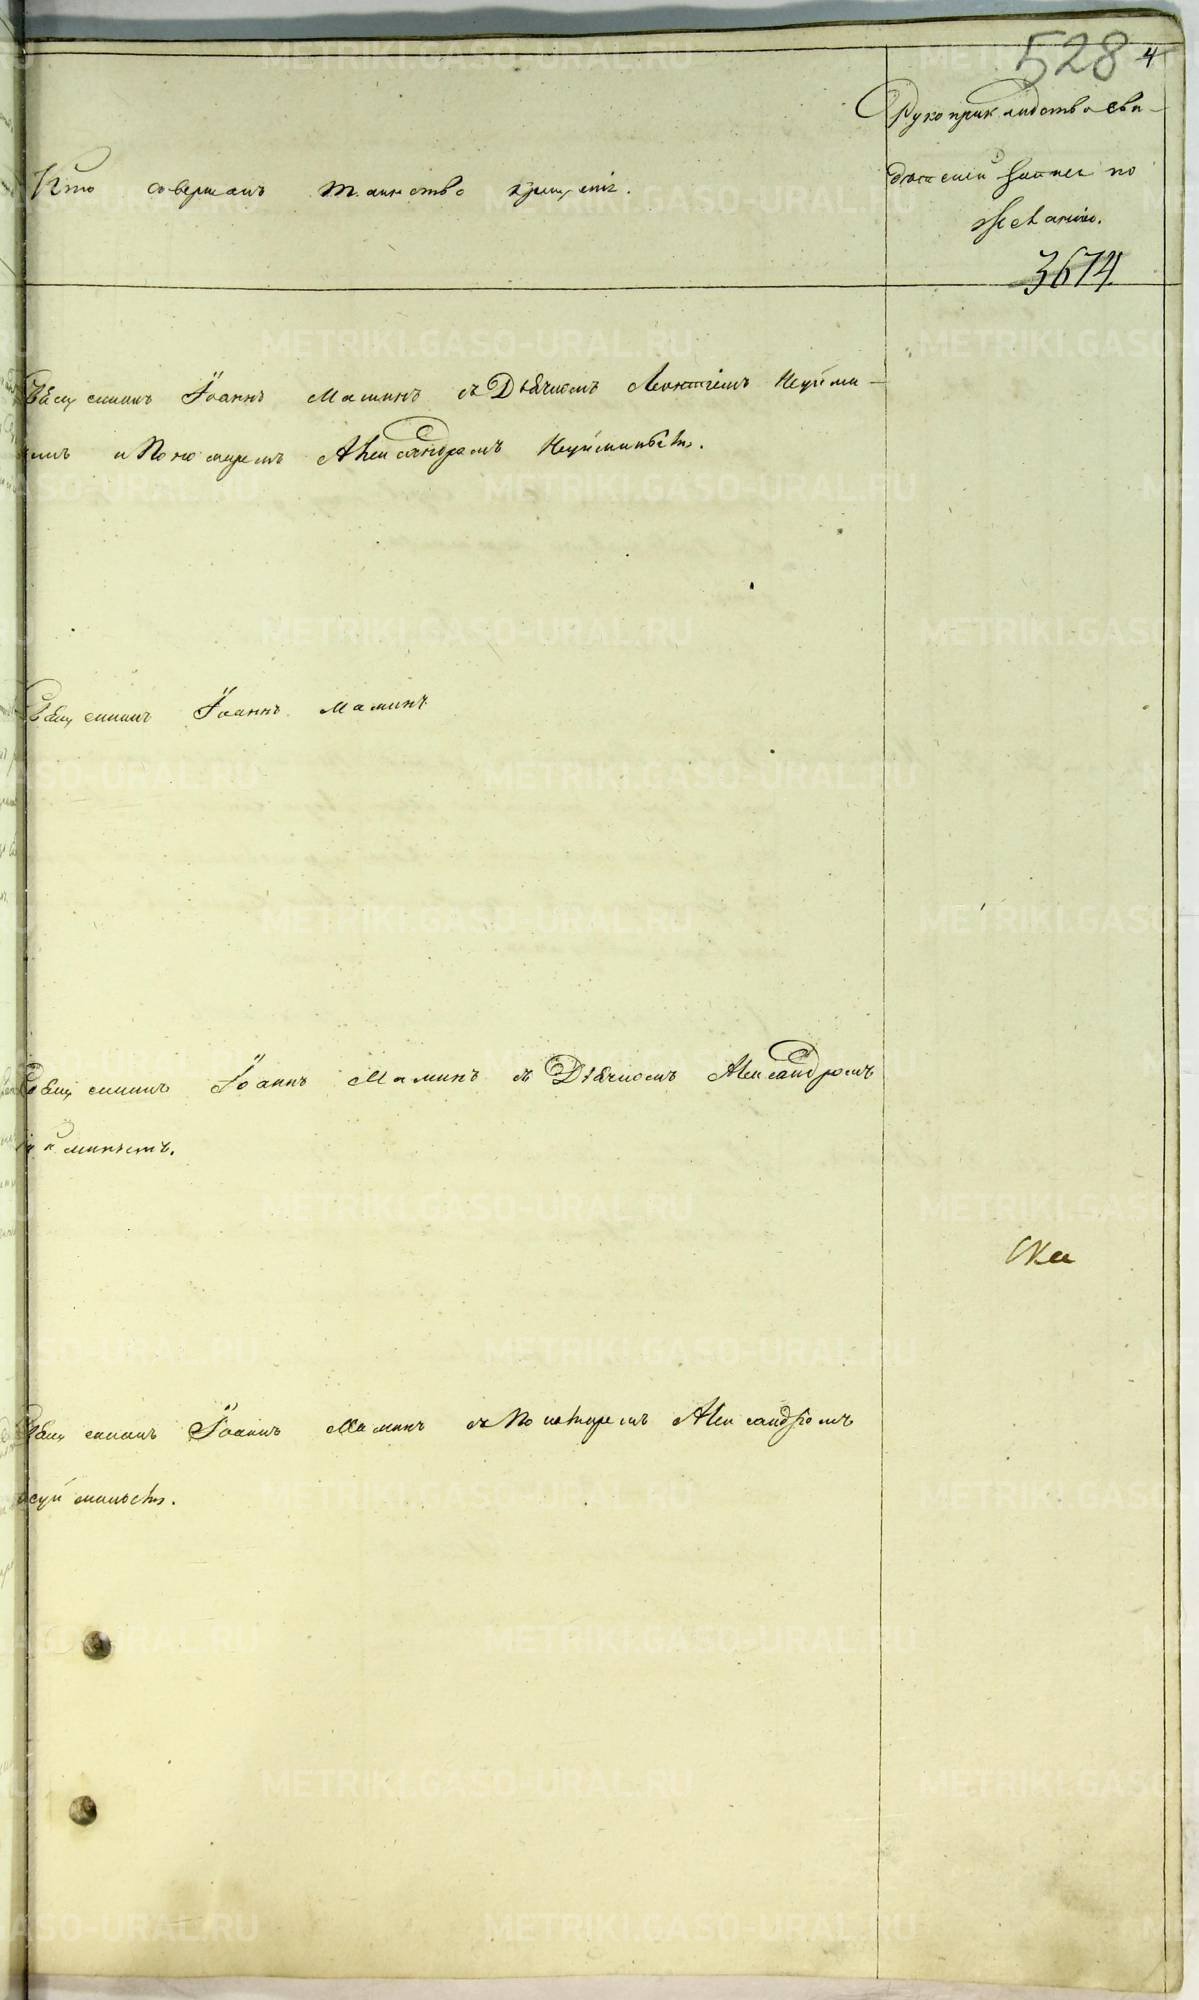 528 4
Рукоприкладство сви-
Кто совершалъ таинство крещенія.
дѣтелей записи по
желанію.
3674.
Священникъ Іоаннъ Маминъ съ Дьячкомъ Неуйми-
и Пономаремъ Александромъ Неуйминымъ.
Священникъ Іоаннъ Маминъ
Священникъ Іоаннъ Маминъ съ Дьячкомъ Александромъ
Священникъ Іоаннъ Маминъ съ Пономаремъ Александромъ
Неуйминымъ.
METRIKI.GASO-URAL.RU